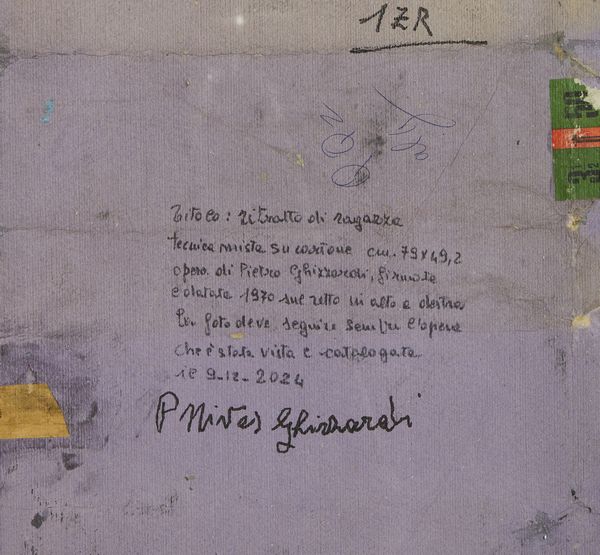 1ZR
Titolo: ritratto di ragazza
tecnica mista su cartone cm. 79x49,2
opera di Pietro Ghizzardi, firmata
e datata 1970 sul retto in alto a destra
La foto deve seguire sempre l'opera
che è stata vista e catalogata
il 9-12-2024
P Nives Ghizzardi